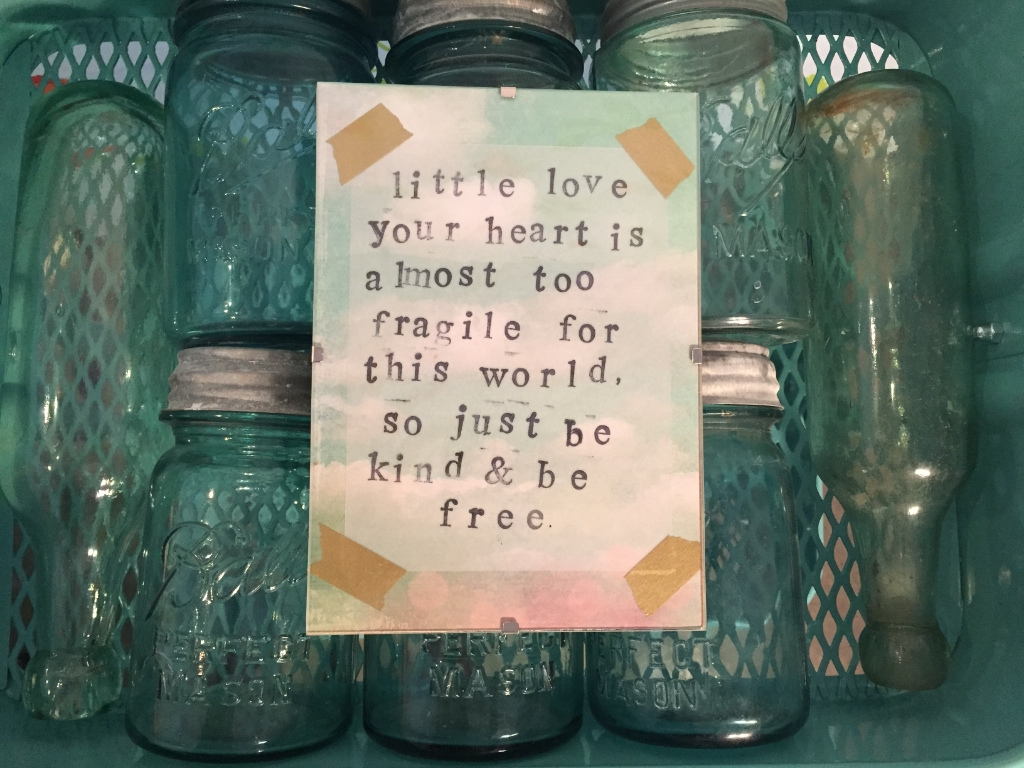 Ball
MASON
MASON
little love
your heart is
almost too
fragile for
this world,
so just be
kind & be
free.
Ball
PERFECT
MASON
PERFECT
MASON
PERFECT
MASON